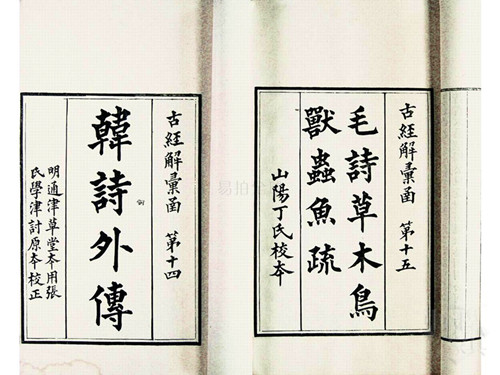 古經解彙函 第十五
毛詩草木鳥
獸蟲魚疏
山陽丁氏校本
古經解彙函 第十四
韓詩外傳
明通津草堂本用張
氏學津討原本校正